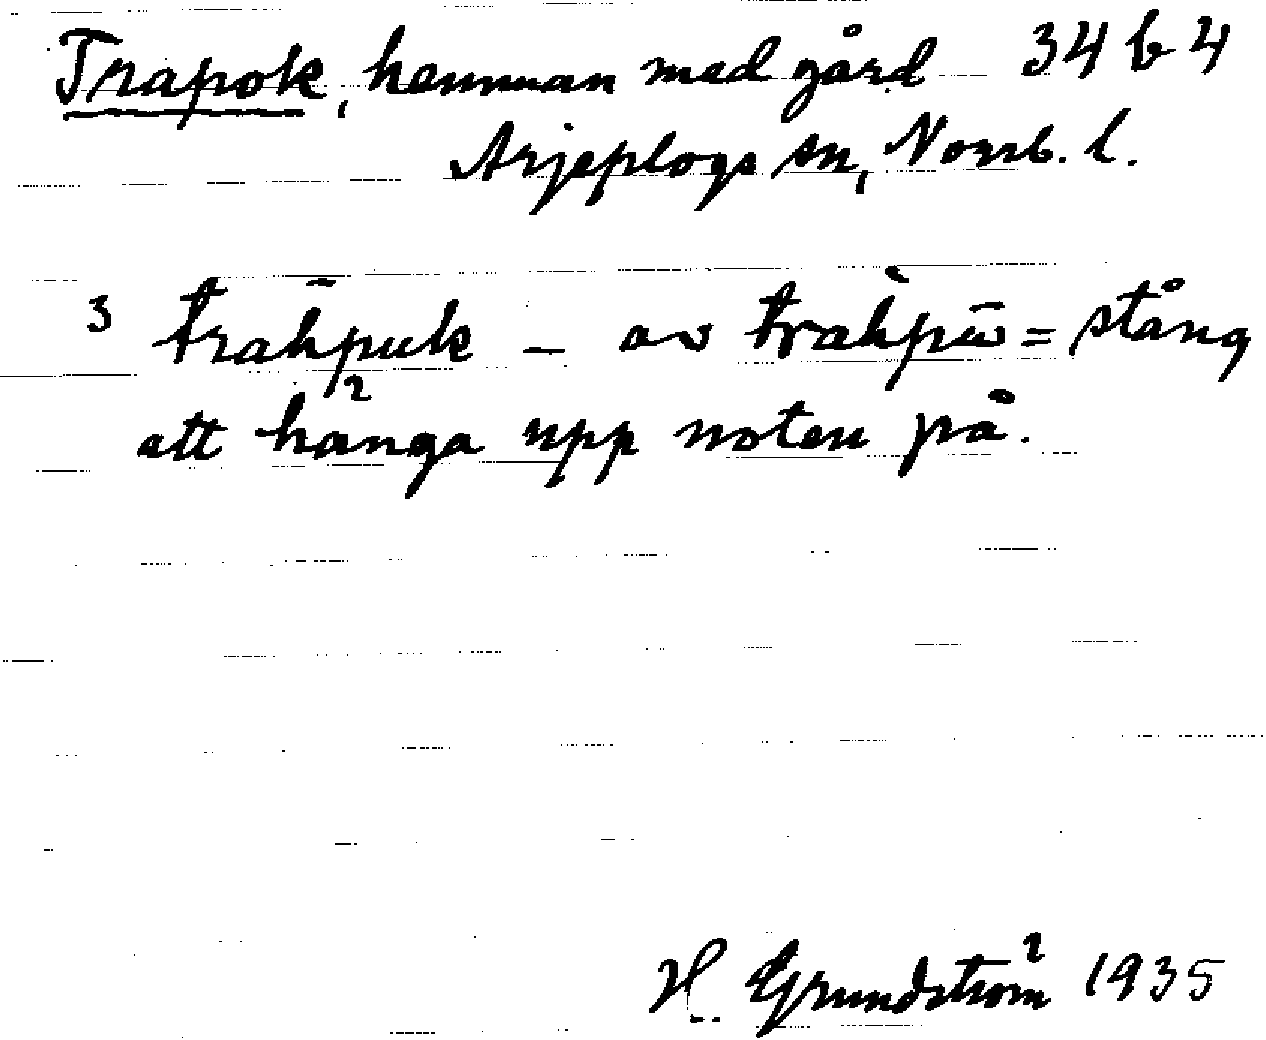 Trapok, hemman med gård 34 b 4
Arjeplogs sn, Norrb. l.
3 trāhpuk – av tràhpū = stång
att hänga upp noten på.
H. Grundström 1935